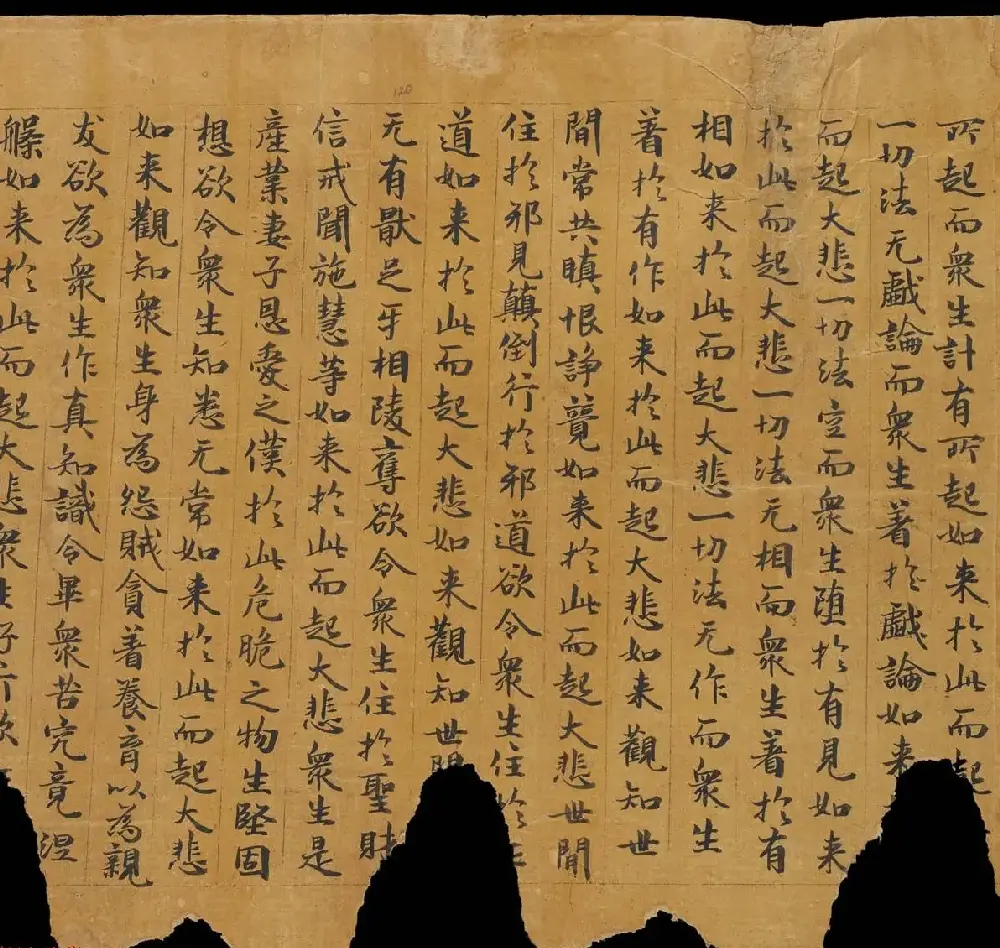 所起而衆生計有所起如来於此而起
一切法无戲論而衆生著於戲論如来
而起大悲一切法空而衆生堕於有見如来
於此而起大悲一切法无相而衆生著於有
相如来於此而起大悲一切法无作而衆生
著於有作如来於此而起大悲如来觀知世
間常共瞋恨諍競如来於此而起大悲世間
住於邪見顛倒行於邪道欲令衆生住於正
道如来於此而起大悲如来觀知世間
无有猒足牙相陵奪欲令衆生住於聖財
信戒聞施慧等如来於此而起大悲衆生是
產業妻子恩愛之僕於此危脆之物生堅固
想欲令衆生知悉无常如来於此而起大悲
如来觀知衆生身為怨賊貪著養育以為親
友欲為衆生作真知識令畢衆苦究竟涅
槃如来於此而起大悲衆生好行欲